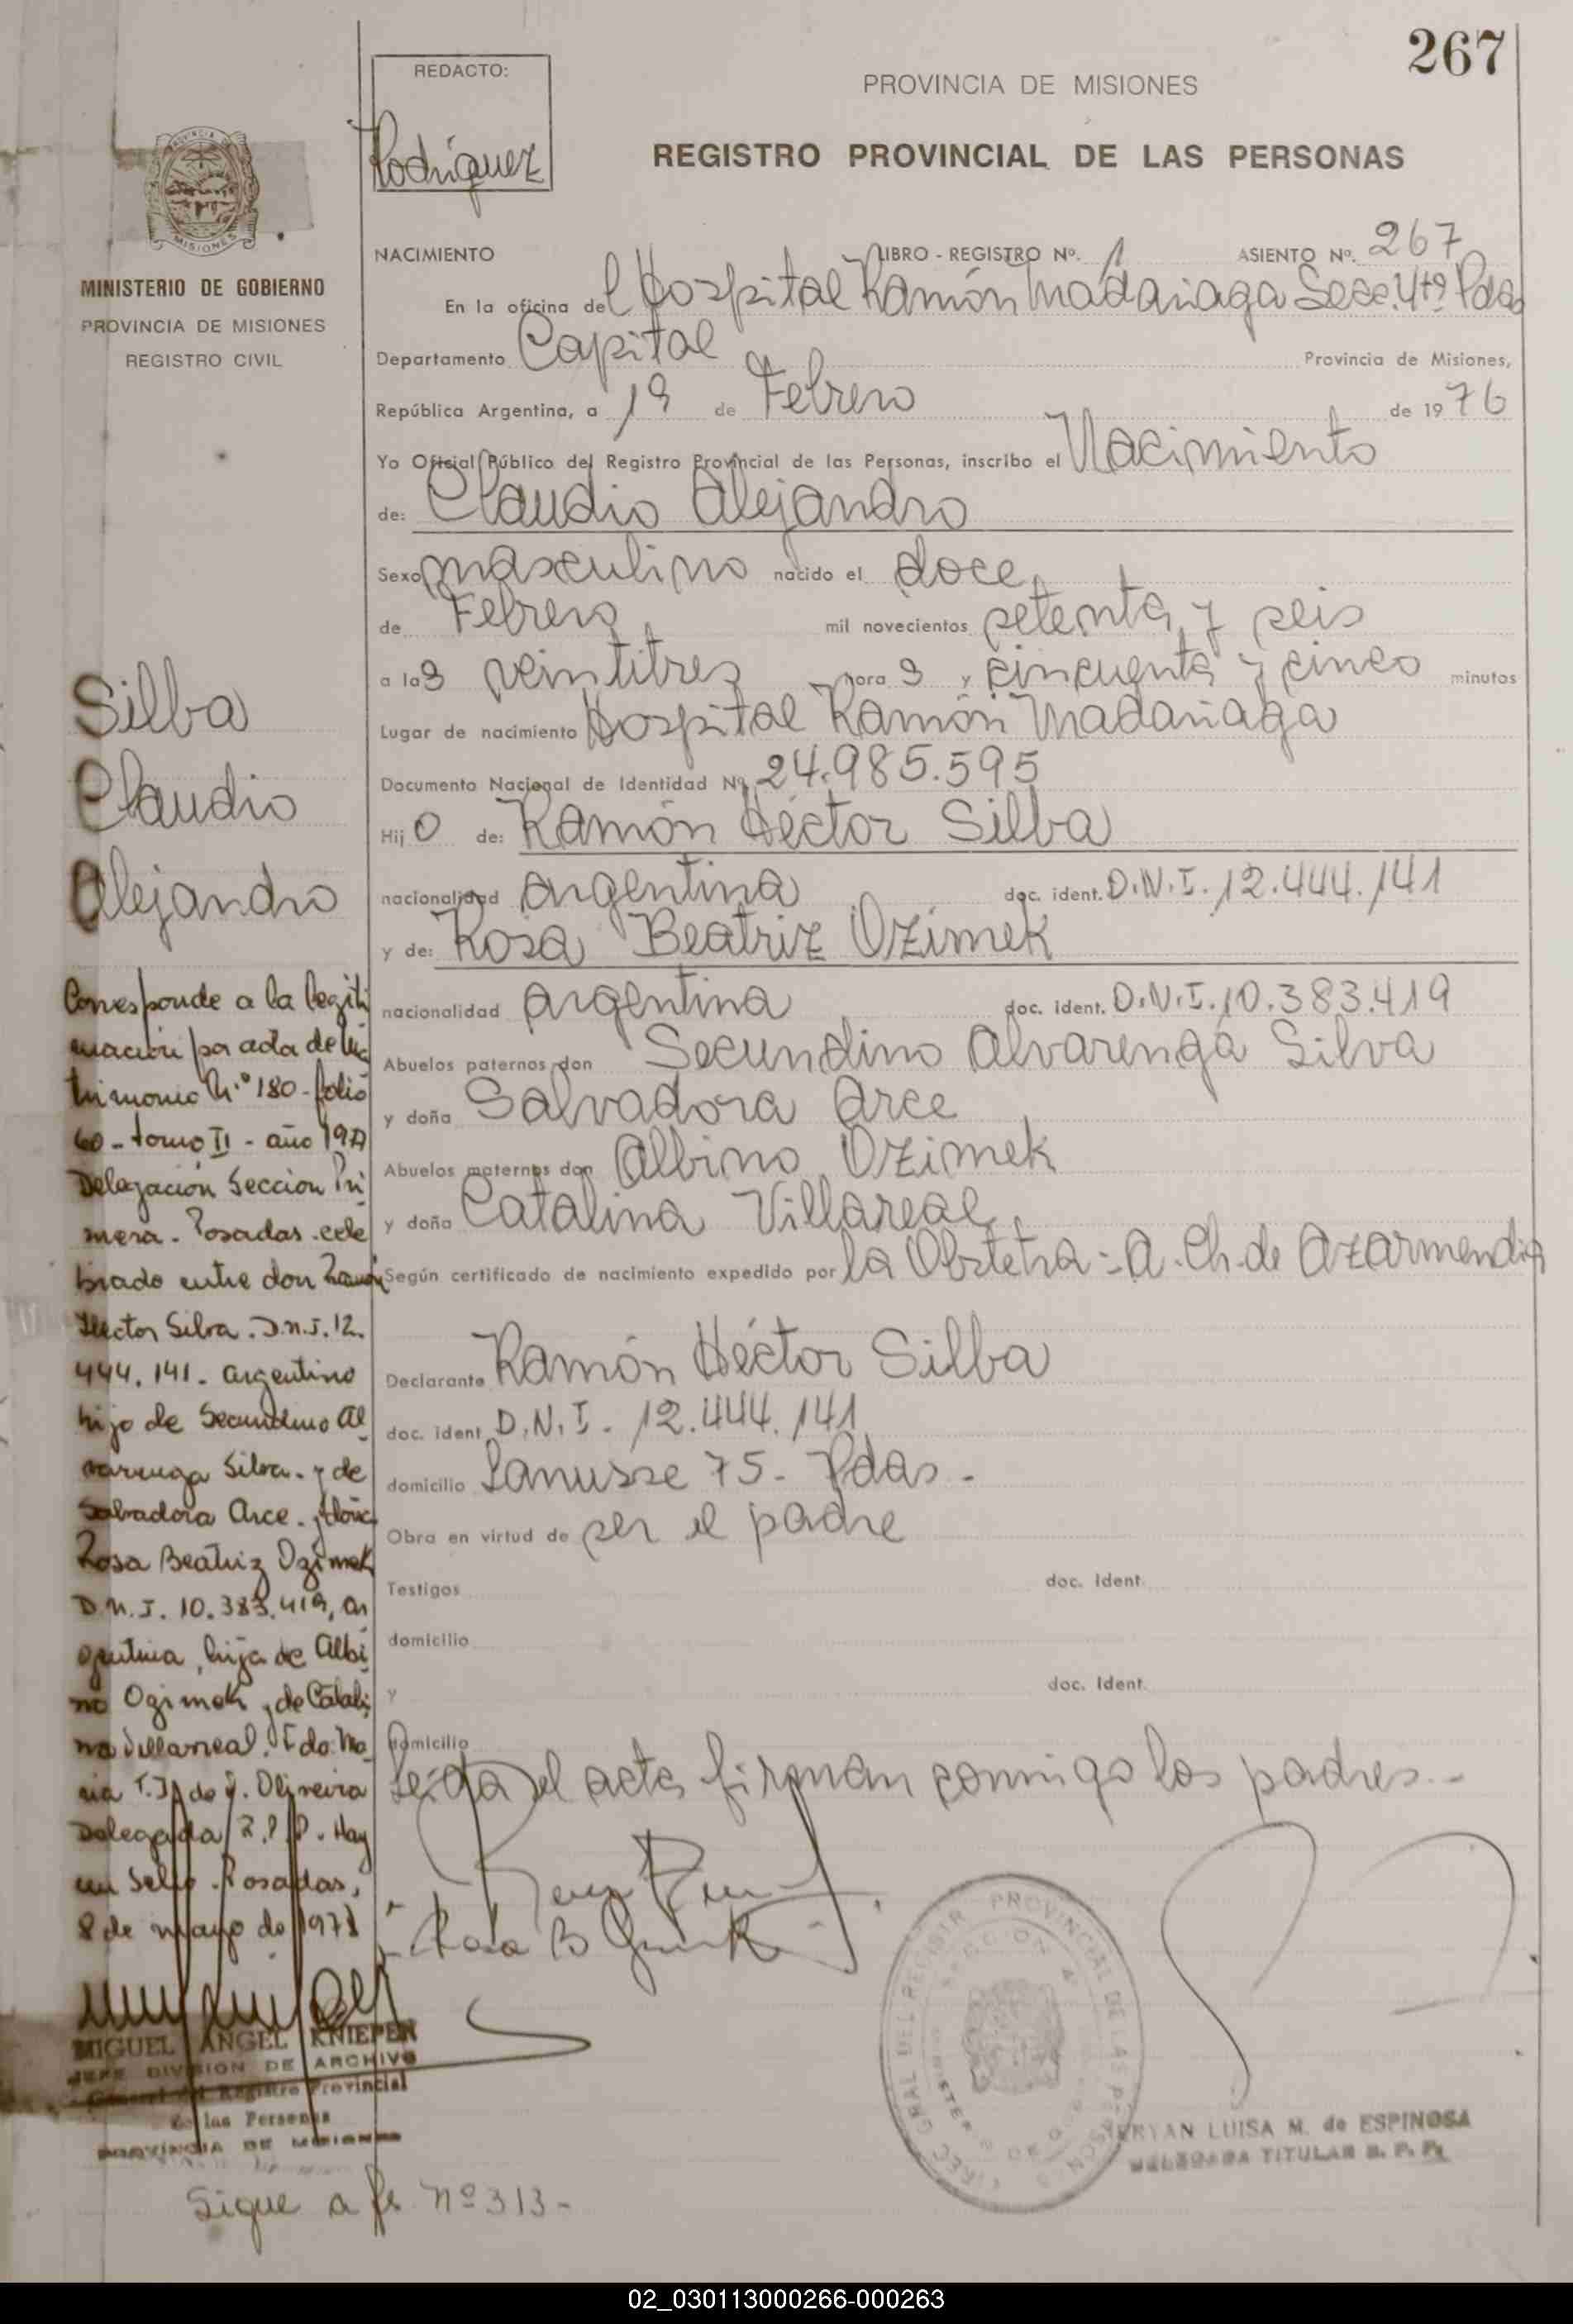 267
REDACTO:
Rodríguez
PROVINCIA DE MISIONES
REGISTRO PROVINCIAL DE LAS PERSONAS
MISIONES
MINISTERIO DE GOBIERNO
PROVINCIA DE MISIONES
REGISTRO CIVIL
NACIMIENTO LIBRO - REGISTRO Nº. 1 ASIENTO Nº. 267
En la oficina del Hospital Ramón Madariaga Secc. 4ta Pdas
Departamento Capital Provincia de Misiones,
República Argentina, a 19 de Febrero de 1976
Yo Oficial Público del Registro Provincial de las Personas, inscribo el Nacimiento
de: Claudio Alejandro
Sexo masculino nacido el doce
de Febrero mil novecientos setenta y seis
a las veintitres hora s y cincuenta y cinco minutos
Lugar de nacimiento Hospital Ramón Madariaga
Documento Nacional de Identidad Nº 24.985.595
Hijo de: Ramón Héctor Silba
nacionalidad argentina doc. ident. D.N.I. 12.444.141
y de: Rosa Beatriz Ozimek
nacionalidad argentina doc. ident. D.N.I. 10.383.419
Abuelos paternos don Secundino Alvarenga Silva
y doña Salvadora Arce
Abuelos maternos don Albino Ozimek
y doña Catalina Villareal
Según certificado de nacimiento expedido por la Obstetra - A. Ch. de Azarmendia
Declarante Ramón Héctor Silba
doc. ident. D.N.I. 12.444.141
domicilio Lanusse 75 - Pdas -
Obra en virtud de ser el padre
Testigos doc. ident.
domicilio
y doc. ident.
domicilio
Leída el acta firman conmigo los padres.-
Silba
Claudio
Alejandro
Corresponde a la legiti
mación por acta de Ma
trimonio Nº 180 - folio
60 - tomo II - año 1977
Delegación Seccion Pri
mera - Posadas - cele
brado entre don Ramón
Hector Silva. D.N.I. 12.
444.141 - argentino
hijo de Secundino Al
varenga Silva - y de
Salvadora Arce - y doña
Rosa Beatriz Ozimek
D.N.I. 10.383.419, ar
gentina, hija de Albi
no Ozimek y de Catali
na Villarreal. Fdo: Ma
ria T. J. de J. Oliveira
Delegada R.P.P. - Hay
un Sello - Posadas,
8 de mayo de 1978
MIGUEL ANGEL KNIEPER
JEFE DIVISION DE ARCHIVO
General del Registro Provincial
de las Personas
PROVINCIA DE MISIONES
Sigue a fs. nº 313 -
Rosa B Ozimek
LUISA M. de ESPINOSA
DELEGADA TITULAR R. P. P.
02_030113000266-000263